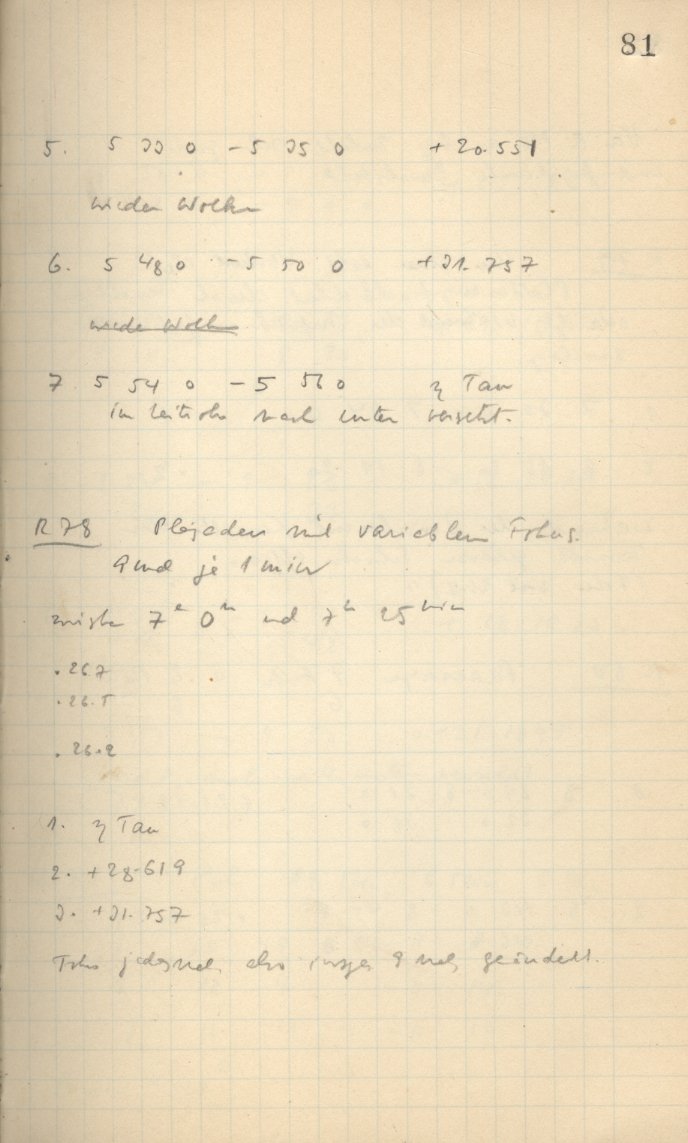 81
5. 5 33 0 - 5 35 0 + 20.551
wieder Wolken
6. 5 48 0 - 5 50 0 + 31.757
wieder Wolken
7. 5 54 0 - 5 56 0 η Tau
im Leitrohr nach unten versetzt.
R 78 Plejaden mit variablem Fokus.
9 mal je 1 min
zwischen 7h 0m und 7h 25 min
. 26.7
. 26.5
. 26.2
1. η Tau
2. + 28.619
3. + 31.757
Fokus jedesmal, also insges 9 mal, geändert.